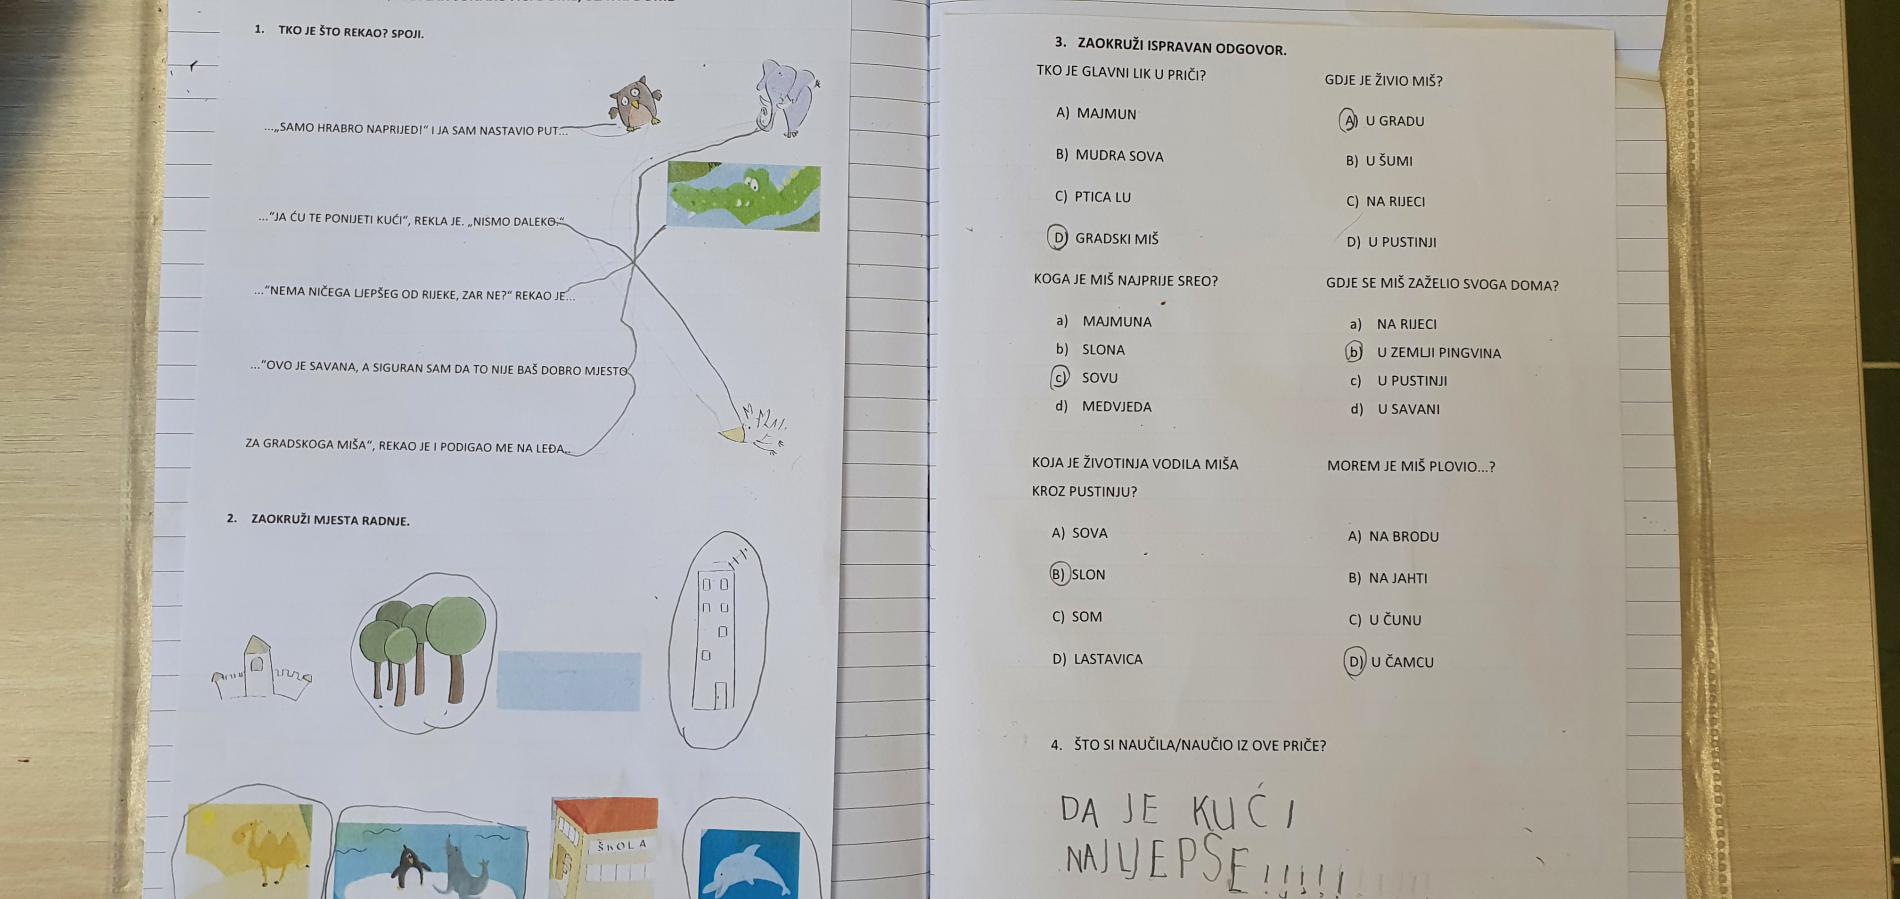 1. TKO JE ŠTO REKAO? SPOJI.
...„SAMO HRABRO NAPRIJED!“ I JA SAM NASTAVIO PUT...
...“JA ĆU TE PONIJETI KUĆI“, REKLA JE. „NISMO DALEKO.“
...“NEMA NIČEGA LJEPŠEG OD RIJEKE, ZAR NE?“ REKAO JE...
...“OVO JE SAVANA, A SIGURAN SAM DA TO NIJE BAŠ DOBRO MJESTO
ZA GRADSKOGA MIŠA“, REKAO JE I PODIGAO ME NA LEĐA..
2. ZAOKRUŽI MJESTA RADNJE.
ŠKOLA
3. ZAOKRUŽI ISPRAVAN ODGOVOR.
TKO JE GLAVNI LIK U PRIČI?
A) MAJMUN
B) MUDRA SOVA
C) PTICA LU
D) GRADSKI MIŠ
GDJE JE ŽIVIO MIŠ?
A) U GRADU
B) U ŠUMI
C) NA RIJECI
D) U PUSTINJI
KOGA JE MIŠ NAJPRIJE SREO?
a) MAJMUNA
b) SLONA
c) SOVU
d) MEDVJEDA
GDJE SE MIŠ ZAŽELIO SVOGA DOMA?
a) NA RIJECI
b) U ZEMLJI PINGVINA
c) U PUSTINJI
d) U SAVANI
KOJA JE ŽIVOTINJA VODILA MIŠA
KROZ PUSTINJU?
A) SOVA
B) SLON
C) SOM
D) LASTAVICA
MOREM JE MIŠ PLOVIO...?
A) NA BRODU
B) NA JAHTI
C) U ČUNU
D) U ČAMCU
4. ŠTO SI NAUČILA/NAUČIO IZ OVE PRIČE?
DA JE KUĆI
NAJLJEPŠE!!!!!